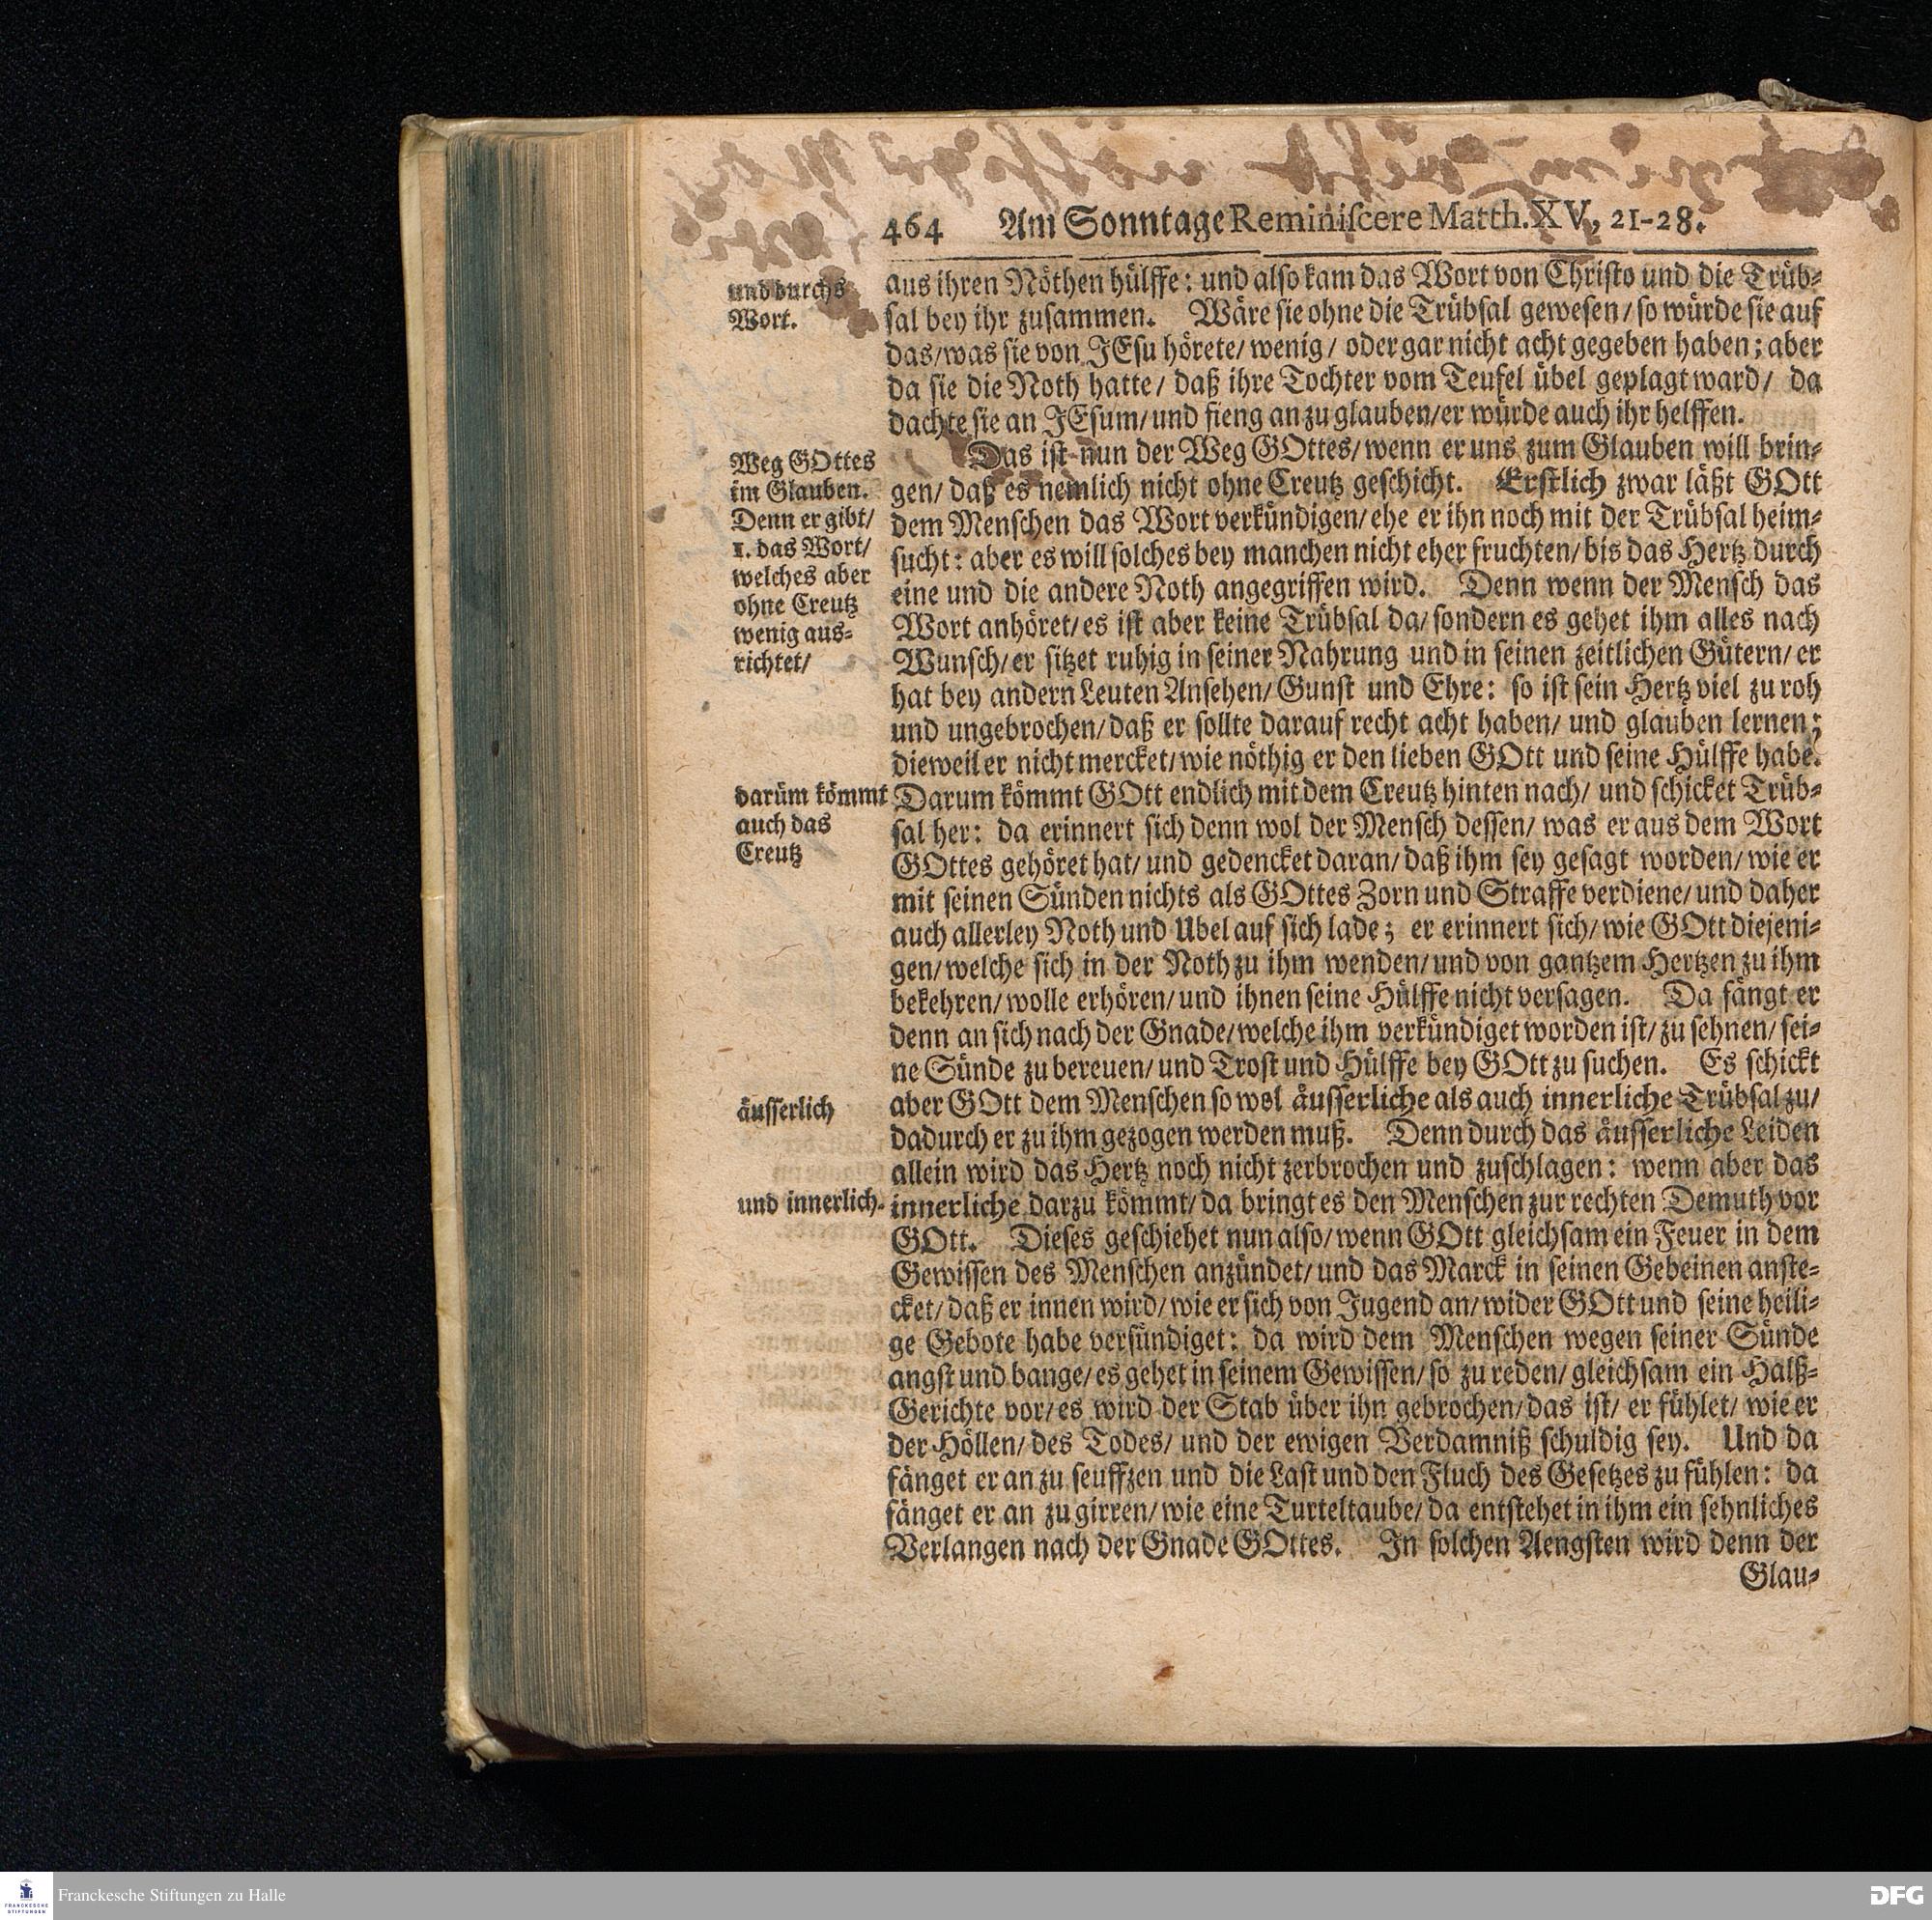 464 Am Sonntage Reminiscere Matth. XV, 21-28.
und durchs
Wort.
aus ihren Nöthen hülffe: und also kam das Wort von Christo und die Trüb-
sal bey ihr zusammen. Wäre sie ohne die Trübsal gewesen/ so würde sie auf
das/ was sie von JEsu hörete/ wenig/ oder gar nicht acht gegeben haben; aber
da sie die Noth hatte/ daß ihre Tochter vom Teufel übel geplagt ward/ da
dachte sie an JEsum/ und fieng an zu glauben/ er würde auch ihr helffen.
Weg GOttes
im Glauben.
Denn er gibt/
1. das Wort/
welches aber
ohne Creutz
wenig aus-
richtet/
Das ist nun der Weg GOttes/ wenn er uns zum Glauben will brin-
gen/ daß es nemlich nicht ohne Creutz geschicht. Erstlich zwar läßt GOtt
dem Menschen das Wort verkündigen/ ehe er ihn noch mit der Trübsal heim-
sucht: aber es will solches bey manchen nicht eher fruchten/ bis das Hertz durch
eine und die andere Noth angegriffen wird. Denn wenn der Mensch das
Wort anhöret/ es ist aber keine Trübsal da/ sondern es gehet ihm alles nach
Wunsch/ er sitzet ruhig in seiner Nahrung und in seinen zeitlichen Gütern/ er
hat bey andern Leuten Ansehen/ Gunst und Ehre: so ist sein Hertz viel zu roh
und ungebrochen/ daß er sollte darauf recht acht haben/ und glauben lernen;
dieweil er nicht mercket/ wie nöthig er den lieben GOtt und seine Hülffe habe.
darüm kömmt
auch das
Creutz
Darum kömmt GOtt endlich mit dem Creutz hinten nach/ und schicket Trüb-
sal her: da erinnert sich denn wol der Mensch dessen/ was er aus dem Wort
GOttes gehöret hat/ und gedencket daran/ daß ihm sey gesagt worden/ wie er
mit seinen Sünden nichts als GOttes Zorn und Straffe verdiene/ und daher
auch allerley Noth und Ubel auf sich lade; er erinnert sich/ wie GOtt diejeni-
gen/ welche sich in der Noth zu ihm wenden/ und von gantzem Hertzen zu ihm
bekehren/ wolle erhören/ und ihnen seine Hülffe nicht versagen. Da fängt er
denn an sich nach der Gnade/ welche ihm verkündiget worden ist/ zu sehnen/ sei-
ne Sünde zu bereuen/ und Trost und Hülffe bey GOtt zu suchen. Es schickt
äusserlich
aber GOtt dem Menschen so wol äusserliche als auch innerliche Trübsal zu/
dadurch er zu ihm gezogen werden muß. Denn durch das äusserliche Leiden
allein wird das Hertz noch nicht zerbrochen und zuschlagen: wenn aber das
und innerlich.
innerliche darzu kömmt/ da bringt es den Menschen zur rechten Demuth vor
GOtt. Dieses geschiehet nun also/ wenn GOtt gleichsam ein Feuer in dem
Gewissen des Menschen anzündet/ und das Marck in seinen Gebeinen anste-
cket/ daß er innen wird/ wie er sich von Jugend an/ wider GOtt und seine heili-
ge Gebote habe versündiget: da wird dem Menschen wegen seiner Sünde
angst und bange/ es gehet in seinem Gewissen/ so zu reden/ gleichsam ein Halß-
Gerichte vor/ es wird der Stab über ihn gebrochen/ das ist/ er fühlet/ wie er
der Höllen/ des Todes/ und der ewigen Verdamniß schuldig sey. Und da
fänget er an zu seuffzen und die Last und den Fluch des Gesetzes zu fühlen: da
fänget er an zu girren/ wie eine Turteltaube/ da entstehet in ihm ein sehnliches
Verlangen nach der Gnade GOttes. In solchen Aengsten wird denn der
Glau-
FRANCKESCHE
STIFTUNGEN
Franckesche Stiftungen zu Halle
DFG